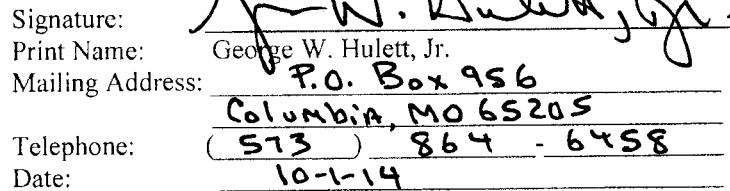 Signature: W. Hulett, Jr.
Print Name: George W. Hulett, Jr.
Mailing Address: P.O. Box 956
Columbia, MO 65205
Telephone: ( 573 ) 864 - 6458
Date: 10-1-14